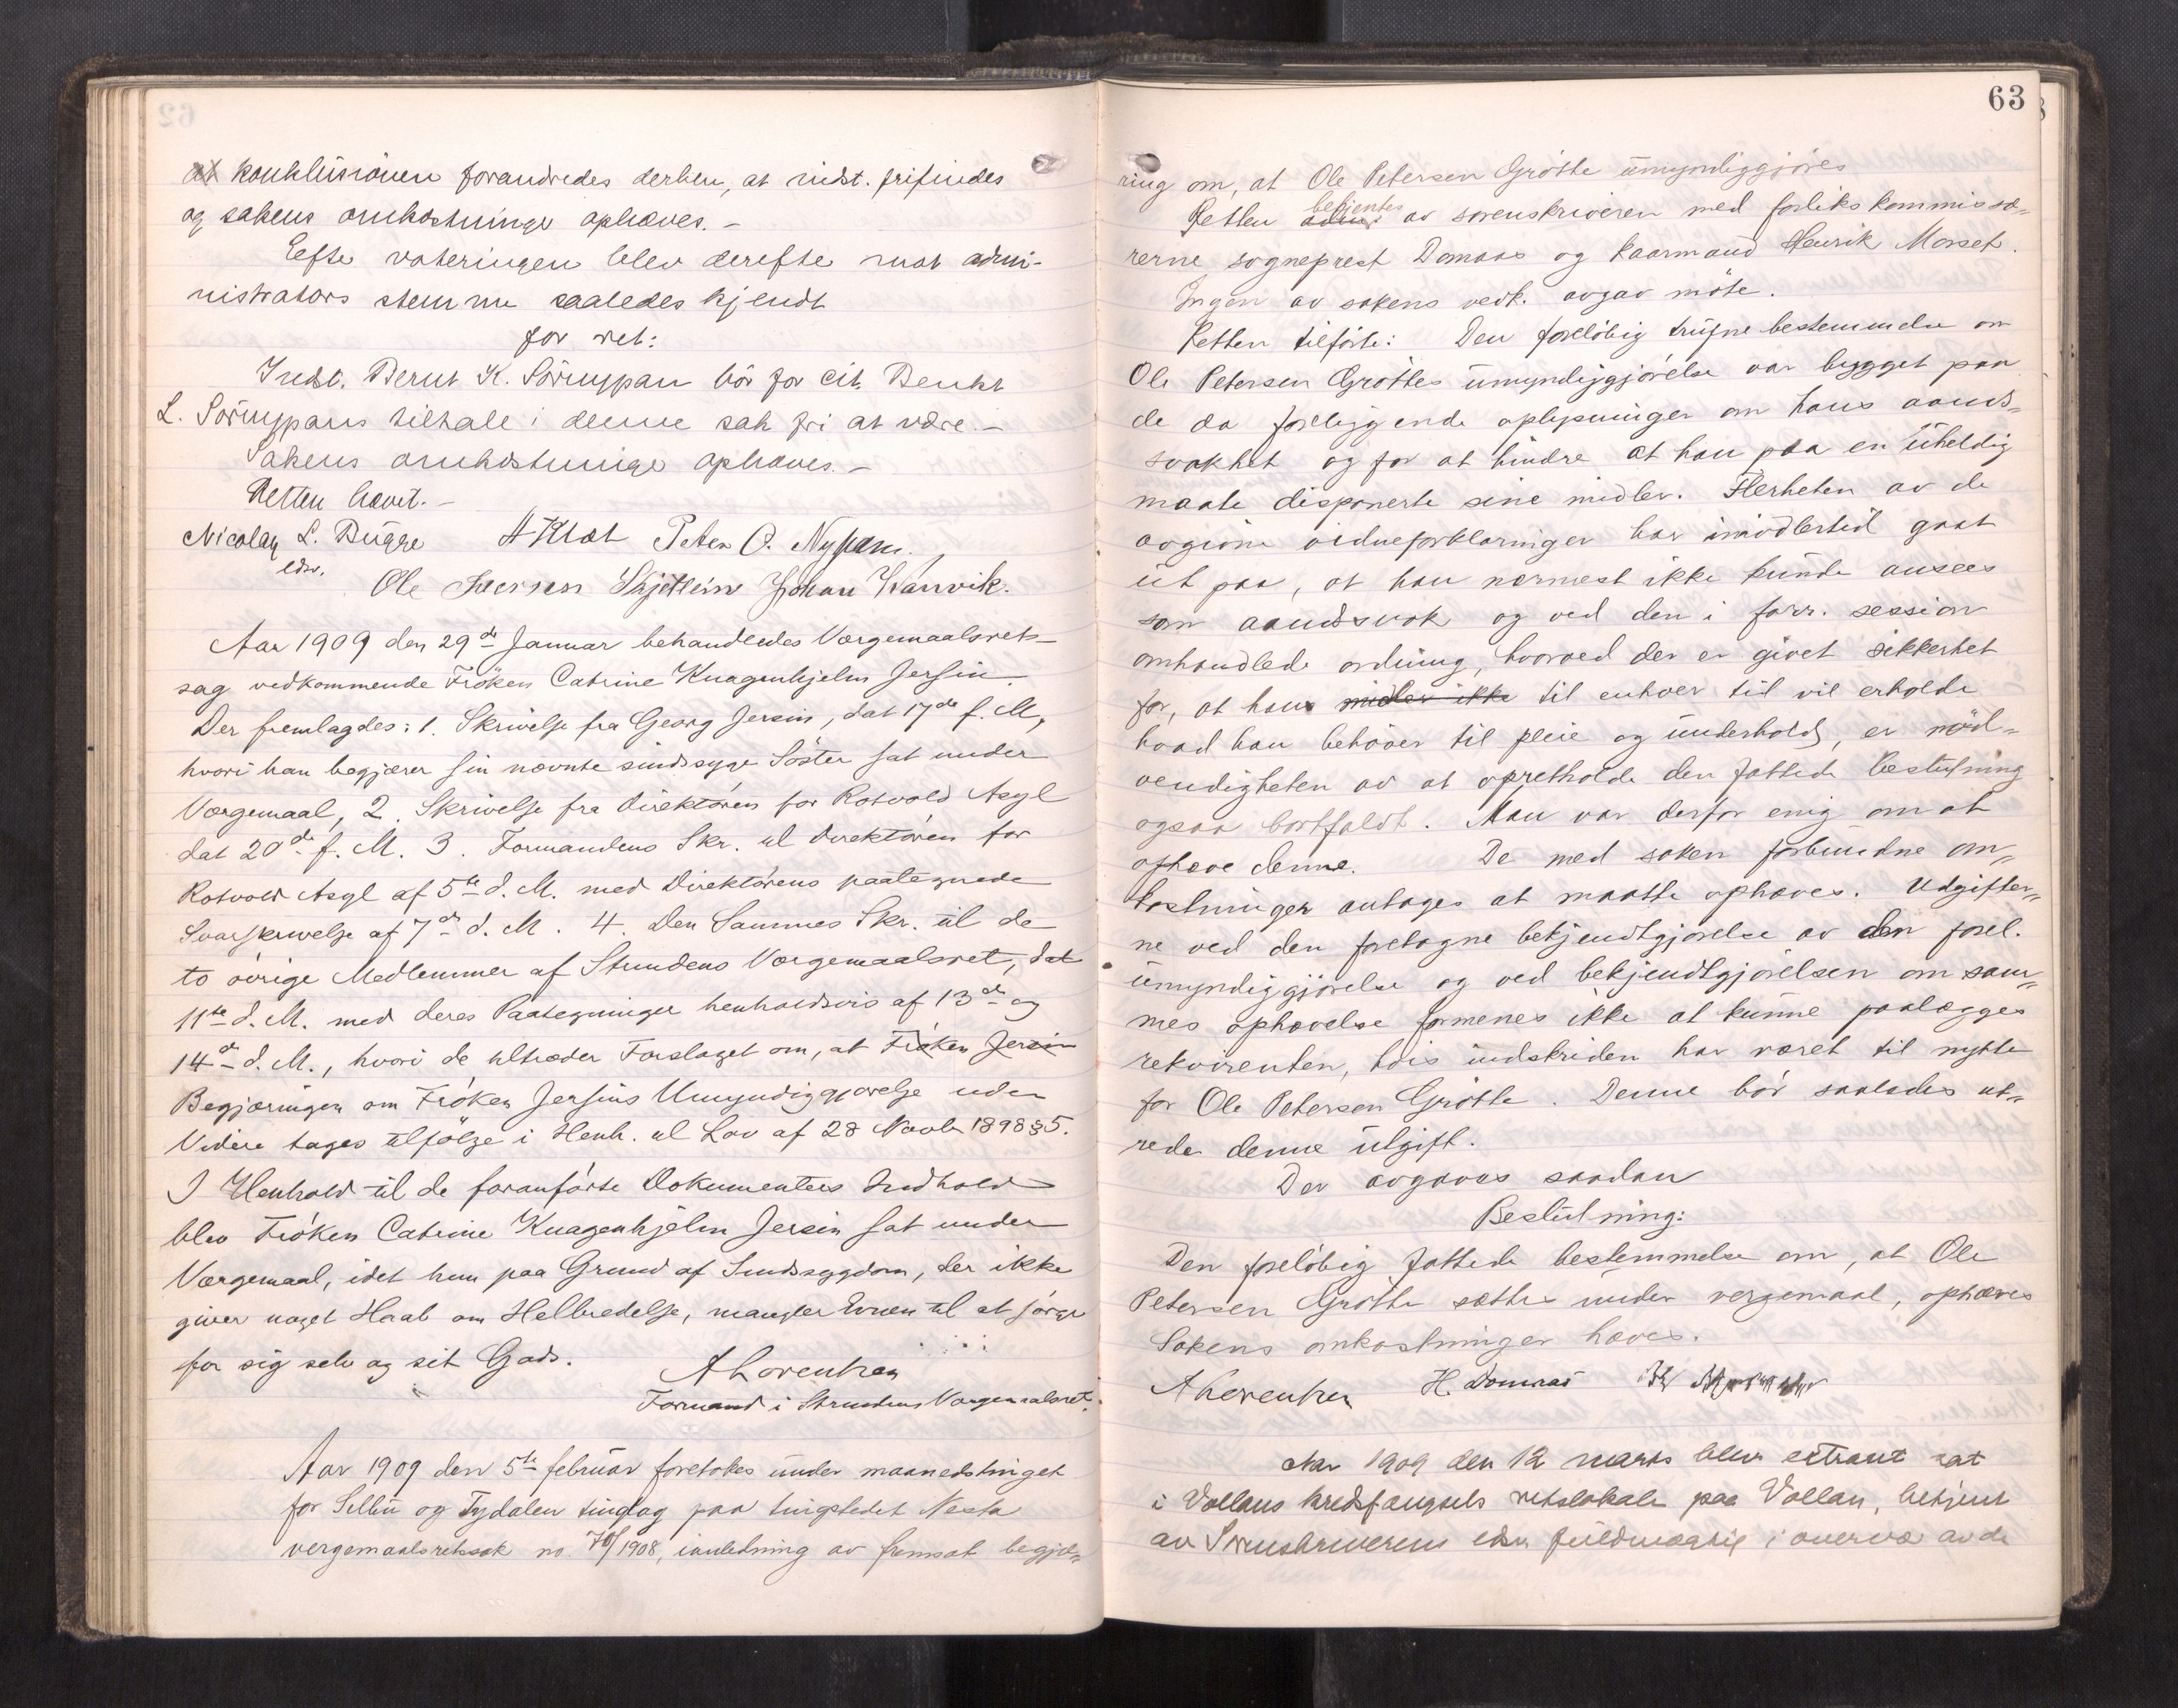 at konklusionen forandredes derhen, at indst. frifindes
og sakens omkostninger ophæves. –
Efter voteringen blev derefter mot admi-
nistrators stemme saaledes kjendt
for ret:
Indst. Bernt K. Sörnypan bör for cit. Benkt
L. Sörnypans tiltale i denne sak fri at være. –
Sakens omkostninger ophæves. –
Retten hævet. –
Nicolay L. Bugge A Klæt Peter O. Nypan.
edsv.
Ole Iversen Skjetlein Johan Hanvik.
Aar 1909 den 29de Januar behandledes Værgemaalsrets-
sag vedkommende Fröken Catrine Knagenhjelm Jersin.
Der fremlagdes: 1. Skrivelse fra Georg Jersin, dat 17de f. M.,
hvori han begjærer sin nævnte sindssyge Söster sat under
Værgemaal, 2. Skrivelse fra Direktören for Rotvold Asyl
dat 20de f. M. 3. Formandens Skr. til Direktören for
Rotvold Asyl af 5te d. M. med Direktörens paategnede
Svarskrivelse af 7de d. M. 4. Den Sammes Skr. til de
to övrige Medlemmer af Strindens Værgemaalsret, dat
11te d. M. med deres Paategninger henholdsvis af 13de og
14de d. M., hvori de tiltræder Forslaget om, at Fröken Jersin
Begjæringen om Fröken Jersins Umyndiggjörelse uden
Videre tages tilfölge i Henh. til Lov af 28 Novbr 1898 § 5.
I Henhold til de foranförte Dokumenters Indhold
blev Fröken Catrine Knagenhjelm Jersin sat under
Værgemaal, idet hun paa Grund af Sindssygdom, der ikke
giver noget Haab om Helbredelse, mangler Evnen til at sörge
for sig selv og sit Gods.
A Lorentzen
Formand i Strindens Værgemaalsret.
Aar 1909 den 5te februar foretokes under maanedstinget
for Selbu og Tydalen tinglag paa tingstedet Nesta
vergemaalsretssak no. 70/1908, i anledning av fremsat begjæ-
63
ring om, at Ole Petersen Grötte umyndiggjöres
betjentes
Retten adm. av sorenskriveren med forlikskommissæ-
rerne, sogneprest Domaas og kaarmand Henrik Morset.
Ingen av sakens vedk. avgav möte.
Retten tilförte: Den forelöbig trufne bestemmelse om
Ole Petersen Gröttes umyndiggjörelse var bygget paa
de da foreliggende oplysninger om hans aands-
svakhet og for at hindre at han paa en uheldig
maate disponerte sine midler. Flerheten av de
avgivne vidneforklaringer har imidlertid gaat
ut paa, at han nærmest ikke kunde ansees
som aandssvak og ved den i forr. session
omhandlede ordning, hvorved der er givet sikkerhet
for, at hans midler ikke til enhver tid vil erholde
hvad han behöver til pleie og underhold, er nöd-
vendigheten av at opretholde den fattede beslutning
ogsaa bortfaldt. Man var derfor enig om at
ophæve denne. De med saken forbundne om-
kostninger antages at maatte ophæves. Udgifter-
ne ved den foretagne bekjendtgjörelse av den forel.
umyndiggjörelse og ved bekjendtgjörelsen om sam-
mes ophævelse formenes ikke at kunne paalægges
rekvirenten, hvis indskriden har været til nytte
for Ole Petersen Grötte. Denne bör saaledes ut-
rede denne utgift.
Der avgaves saadan
Beslutning:
Den forelöbig fattede bestemmelse om, at Ole
Petersen Grötte sættes under vergemaal, ophæves
Sakens omkostninger hæves.
A Lorentzen H. Domaas
Aar 1909 den 12 marts blev extraret sat
i Vollans kredsfængsels retslokale paa Vollan, betjent
av Sorenskriverens edsv fuldmægtig i overvær av de